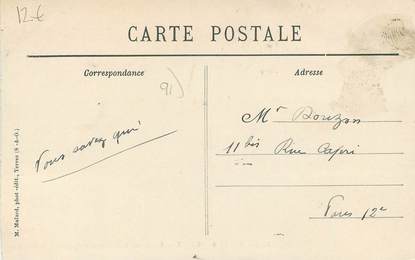 12€
CARTE POSTALE
Correspondance
Adresse
91
Vous savez qui
Mr Bouzon
11 bis Rue Capri
Paris 12e
M. Mulard, phot-édit., Yerres (S.-&-O.)